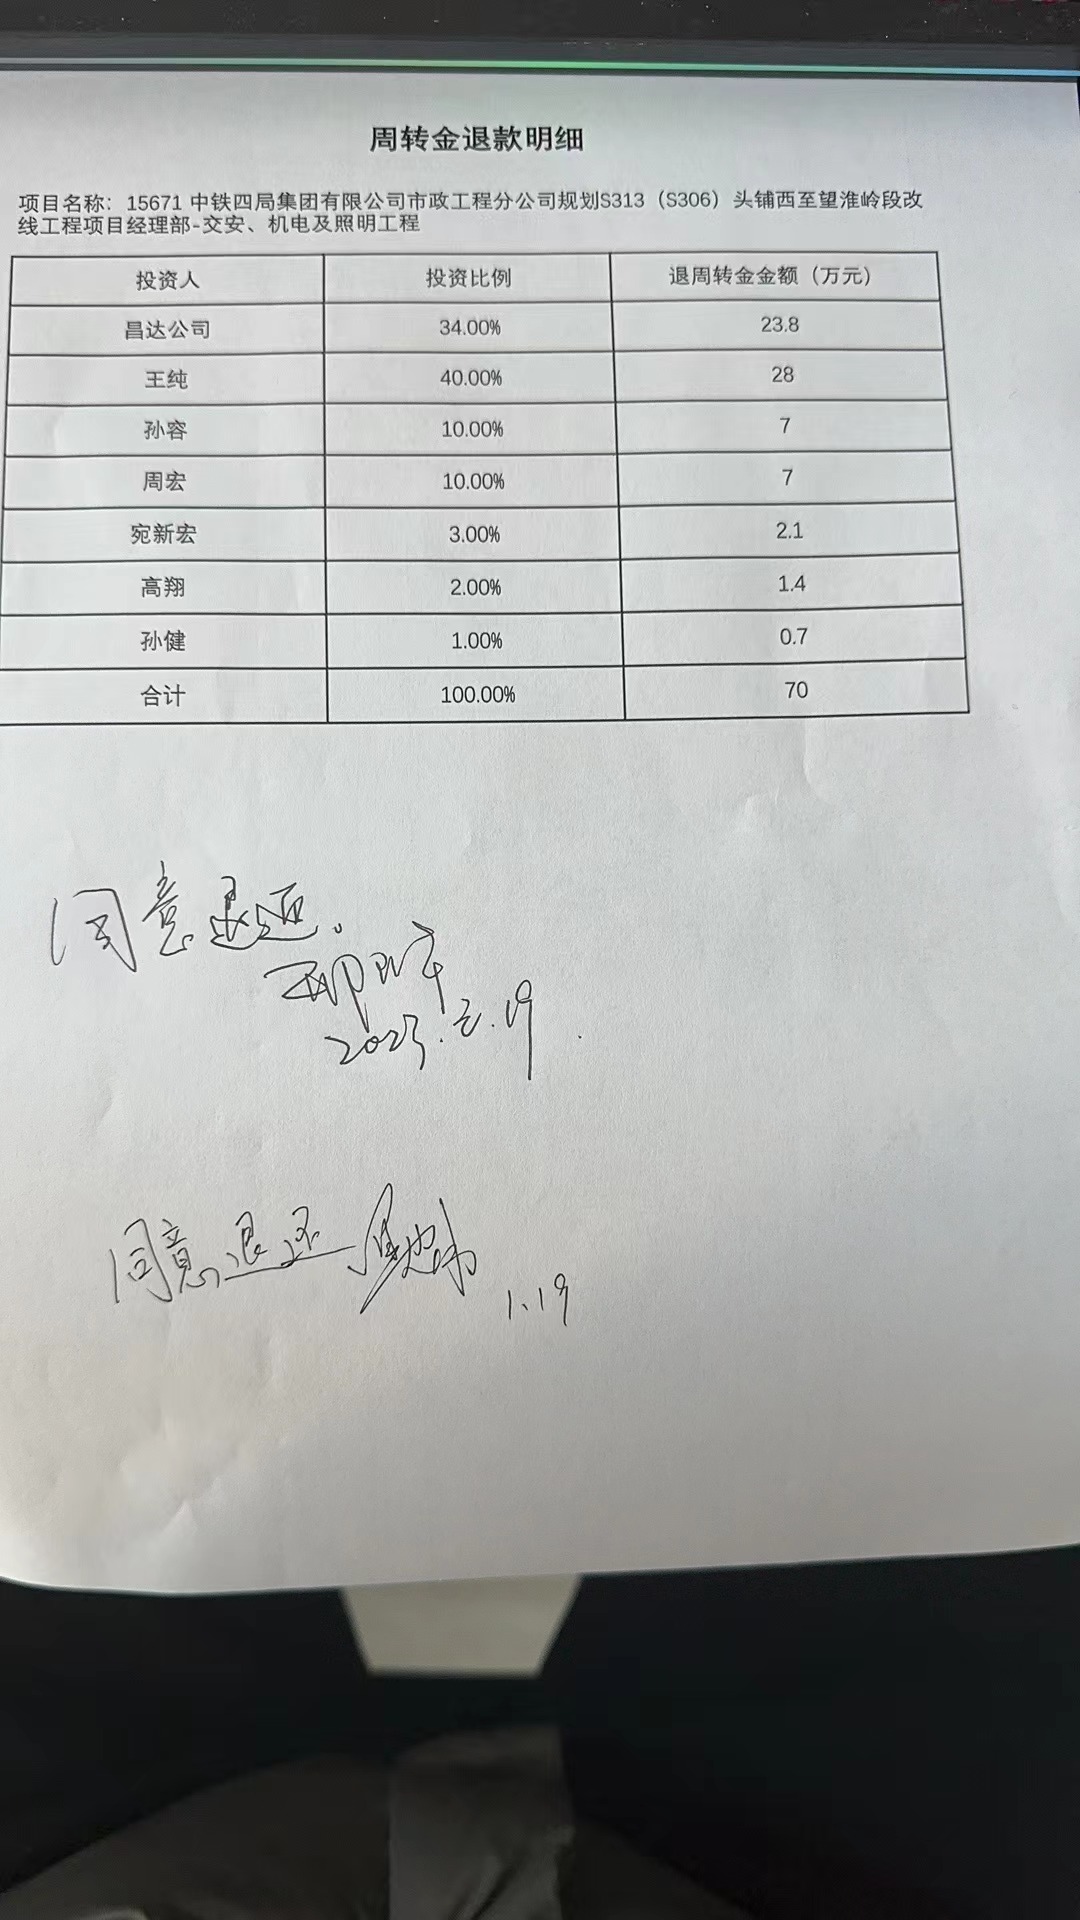 周转金退款明细
项目名称：15671 中铁四局集团有限公司市政工程分公司规划S313（S306）头铺西至望淮岭段改
线工程项目经理部-交安、机电及照明工程
投资人 投资比例 退周转金金额（万元）
昌达公司 34.00% 23.8
王纯 40.00% 28
孙容 10.00% 7
周宏 10.00% 7
宛新宏 3.00% 2.1
高翔 2.00% 1.4
孙健 1.00% 0.7
合计 100.00% 70
同意退还。
同意退还
1.19